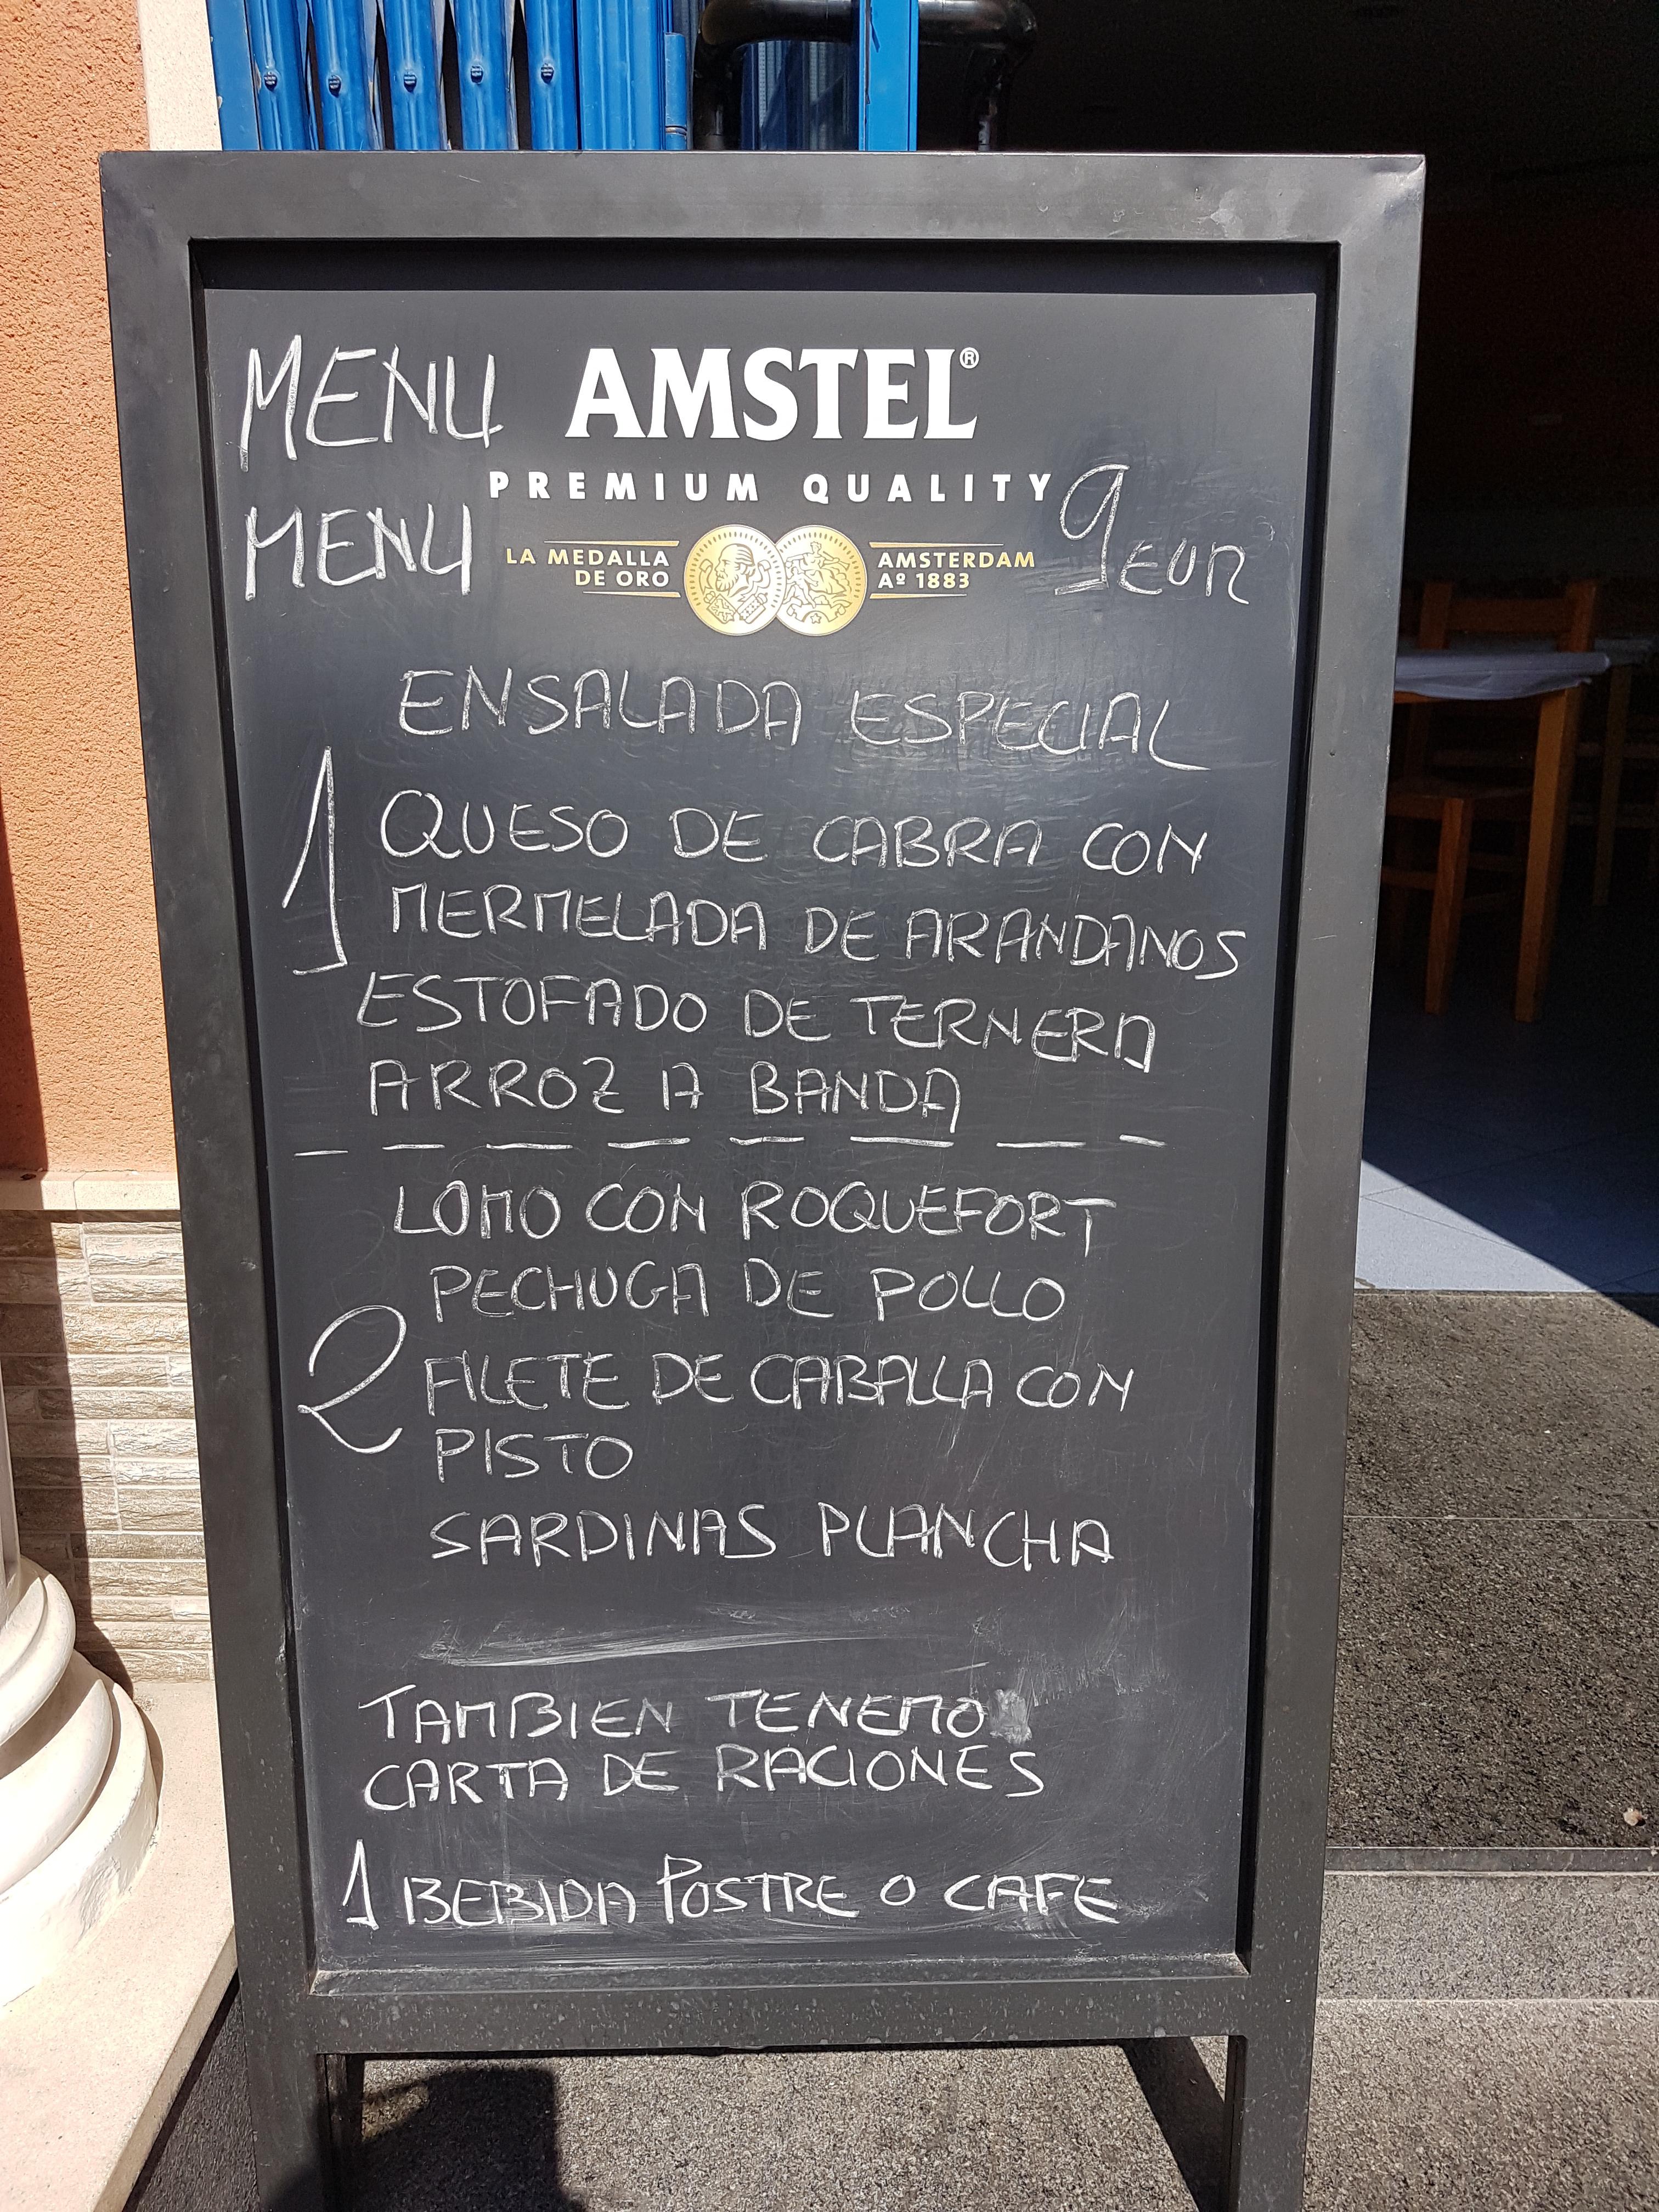 MENU AMSTEL®
PREMIUM QUALITY
MENU LA MEDALLA DE ORO AMSTERDAM Aº 1883 9 EUR
ENSALADA ESPECIAL
1 QUESO DE CABRA CON
MERMELADA DE ARANDANOS
ESTOFADO DE TERNERA
ARROZ A BANDA
LOMO CON ROQUEFORT
PECHUGA DE POLLO
2 FILETE DE CABALLA CON
PISTO
SARDINAS PLANCHA
TAMBIEN TENEMO
CARTA DE RACIONES
1 BEBIDA POSTRE O CAFE